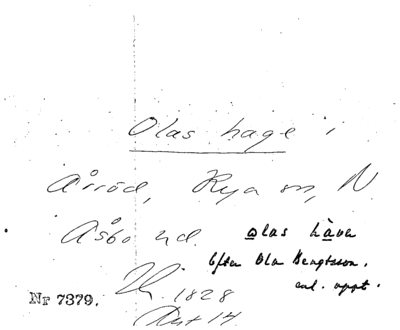 Olas hage i
Årröd, Rya sn, N
Åsbo hd. olas hàva
efter Ola Bengtsson.
enl. uppt.
1828
Nr 7379.
Akt 14